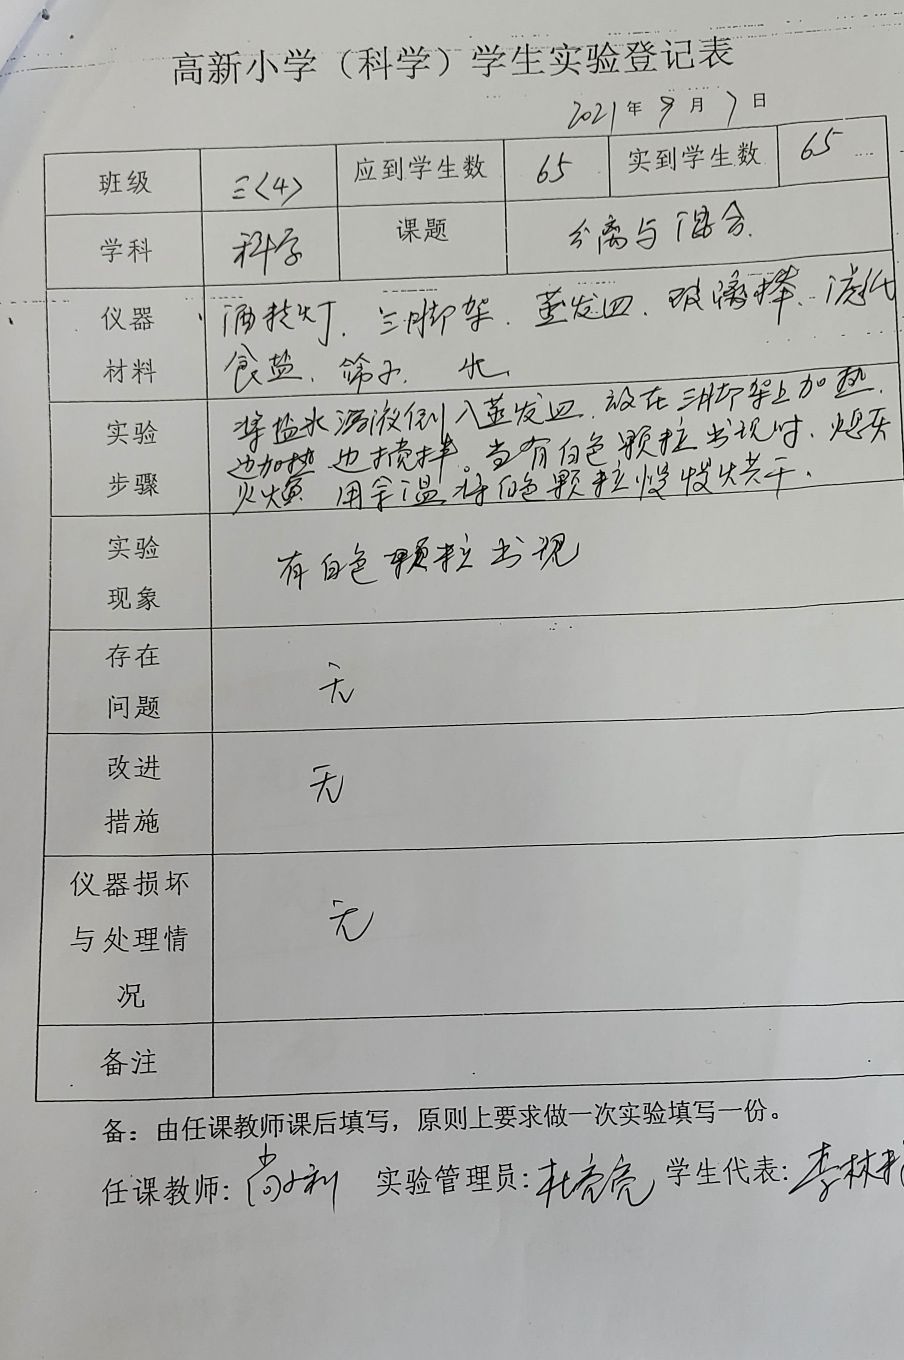 高新小学（科学）学生实验登记表
2021年9月7日
班级 三〈4〉 应到学生数 65 实到学生数 65
学科 科学 课题 分离与混合.
仪器材料 酒精灯、三脚架、蒸发皿、玻璃棒、滤纸
食盐、筛子、水、
实验步骤 将盐水溶液倒入蒸发皿、放在三脚架上加热.
边加热边搅拌。当有白色颗粒出现时、熄灭
火焰 用余温将白色颗粒慢慢烘干.
实验现象 有白色颗粒出现
存在问题 无
改进措施 无
仪器损坏与处理情况 无
备注
备：由任课教师课后填写，原则上要求做一次实验填写一份。
任课教师: 实验管理员: 杜亮亮 学生代表: 李林